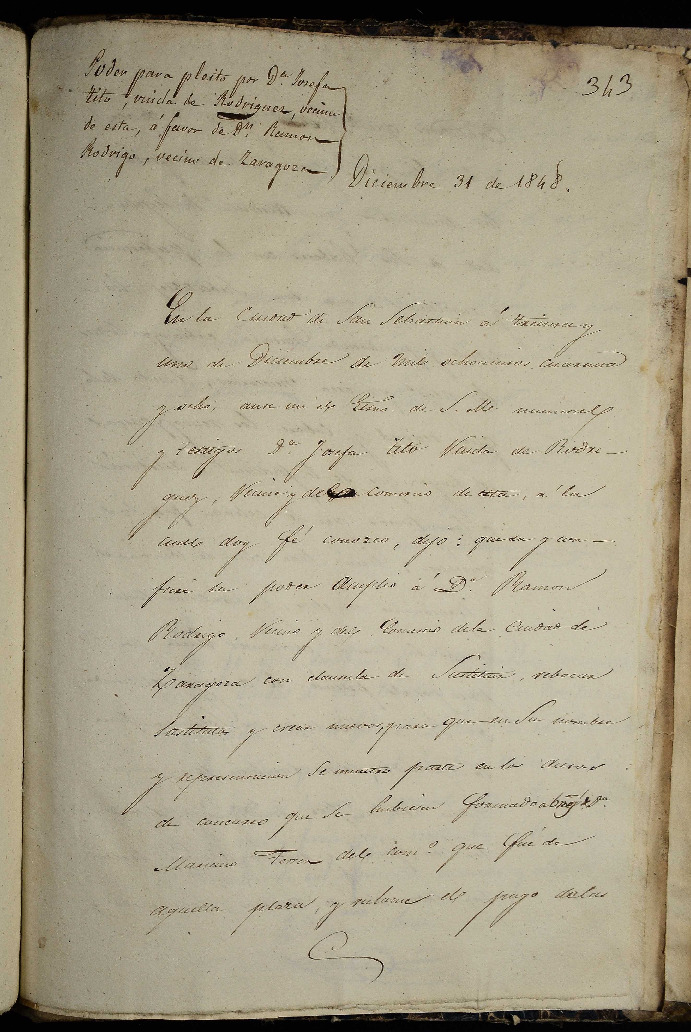 343
Poder para pleito por D.ª Josefa
tito, viuda de Rodriguez, vecina
de esta, á favor de D.n Ramon
Rodrigo, vecino de Zaragoza
Diciembre 31 de 1848.
En la Ciudad de San Sebastian á treinta y
uno de Diciembre de mil ochocientos cuarenta
y ocho, ante mi el Esno de S. M. numeral
y testigos D.ª Josefa tito Viuda de Rodri-
guez, Vecina y del comercio de esta, á la
cual doy fé conozco, dijo: que da y con-
fiere su poder amplio á D.n Ramon
Rodrigo, Vecino y del Comercio de la Ciudad de
Zaragoza con clausula de Sustituir, rebocar
Sustitutos y crear nuevos, para que en Su nombre
y representacion se muestre parte en los
de concurso que Se hubiesen formado D.n
Mariano del com.o que fué de
aquella plaza, y reclame el pago de los